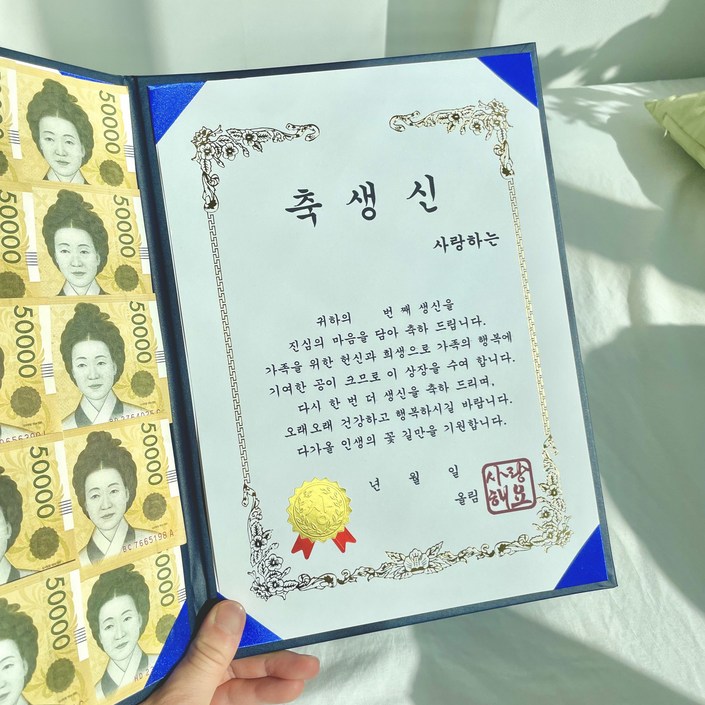 50000
50000
50000
50000
50000
50000
50000
50000
BC 7665198 A
0000
50000
축 생 신
사랑하는
귀하의 번 째 생신을
진심의 마음을 담아 축하 드립니다.
가족을 위한 헌신과 희생으로 가족의 행복에
기여한 공이 크므로 이 상장을 수여 합니다.
다시 한 번 더 생신을 축하 드리며,
오래오래 건강하고 행복하시길 바랍니다.
다가올 인생의 꽃 길만을 기원합니다.
년 월 일
올림
사랑
해요